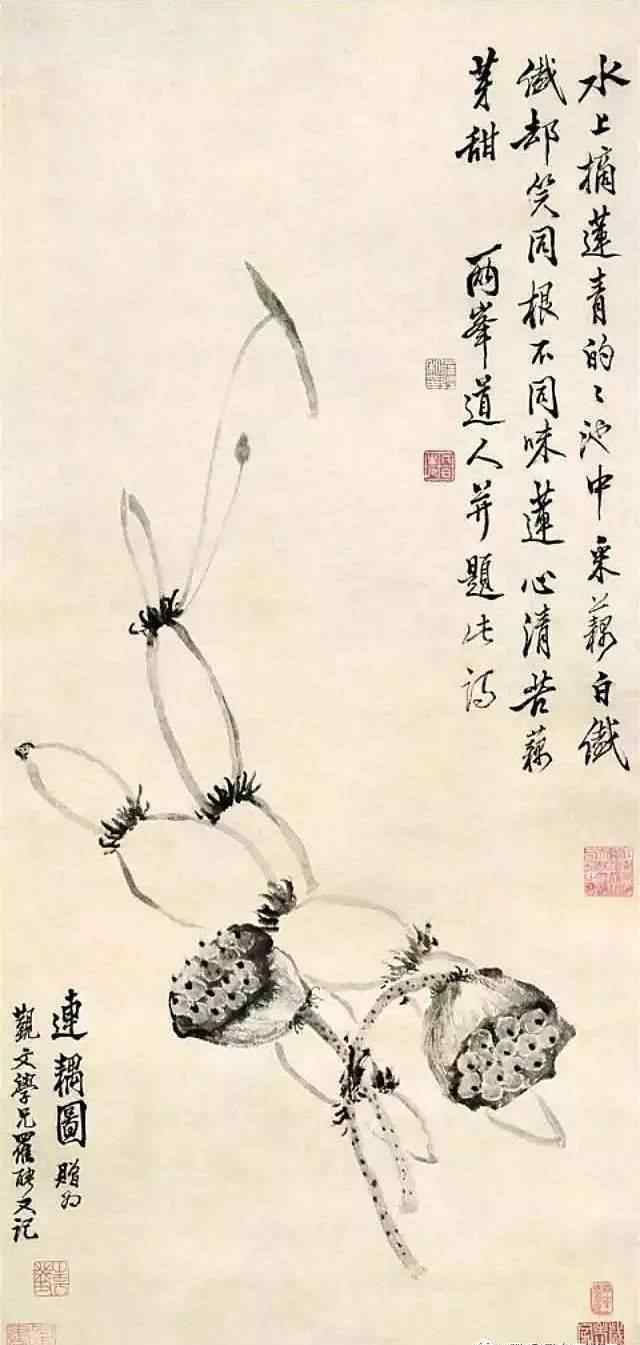 水上摘蓮青的〻池中采藕白纖
纖却笑同根不同味蓮心清苦藕
芽甜　兩峯道人并題此詩
連耦圖 贈为
觀文學兄羅聘又記